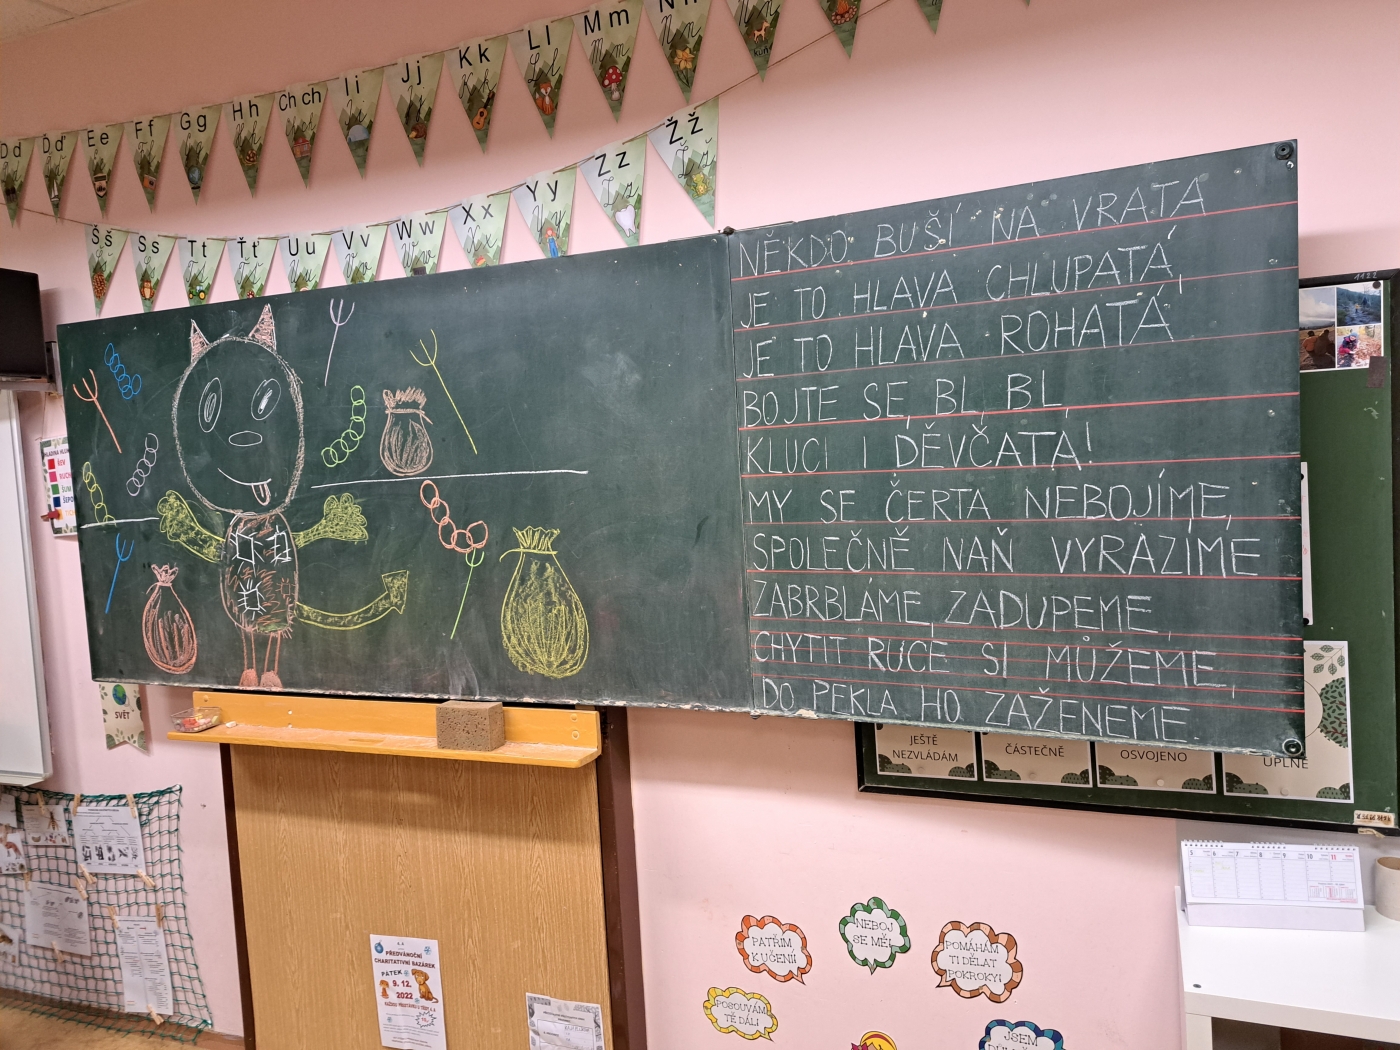 Dd
Ďď
Ee
Ff
Gg
Hh
Ch ch
Ii
Jj
Kk
Ll
Mm
Nn
Šš
Ss
Tt
Ťť
Uu
Vv
Ww
Xx
Yy
Zz
Žž
NĚKDO BUŠÍ NA VRATA
JE TO HLAVA CHLUPATÁ,
JE TO HLAVA ROHATÁ
BOJTE SE, BL, BL,
KLUCI I DĚVČATA!
MY SE ČERTA NEBOJÍME,
SPOLEČNĚ NAŇ VYRAZÍME
ZABRBLÁME, ZADUPEME,
CHYTIT RUCE SI MŮŽEME,
DO PEKLA HO ZAŽENEME.
SVĚT
JEŠTĚ
NEZVLÁDÁM
ČÁSTEČNĚ
OSVOJENO
ÚPLNĚ
PŘEDVÁNOČNÍ
CHARITATIVNÍ BAZÁREK
PÁTEK
9. 12.
2022
PATŘÍM
K UČENÍ!
NEBOJ
SE MĚ!
POMÁHÁM
TI DĚLAT
POKROKY!
POSOUVÁM
TĚ DÁL!
JSEM
5 6 7 8 9 10 11